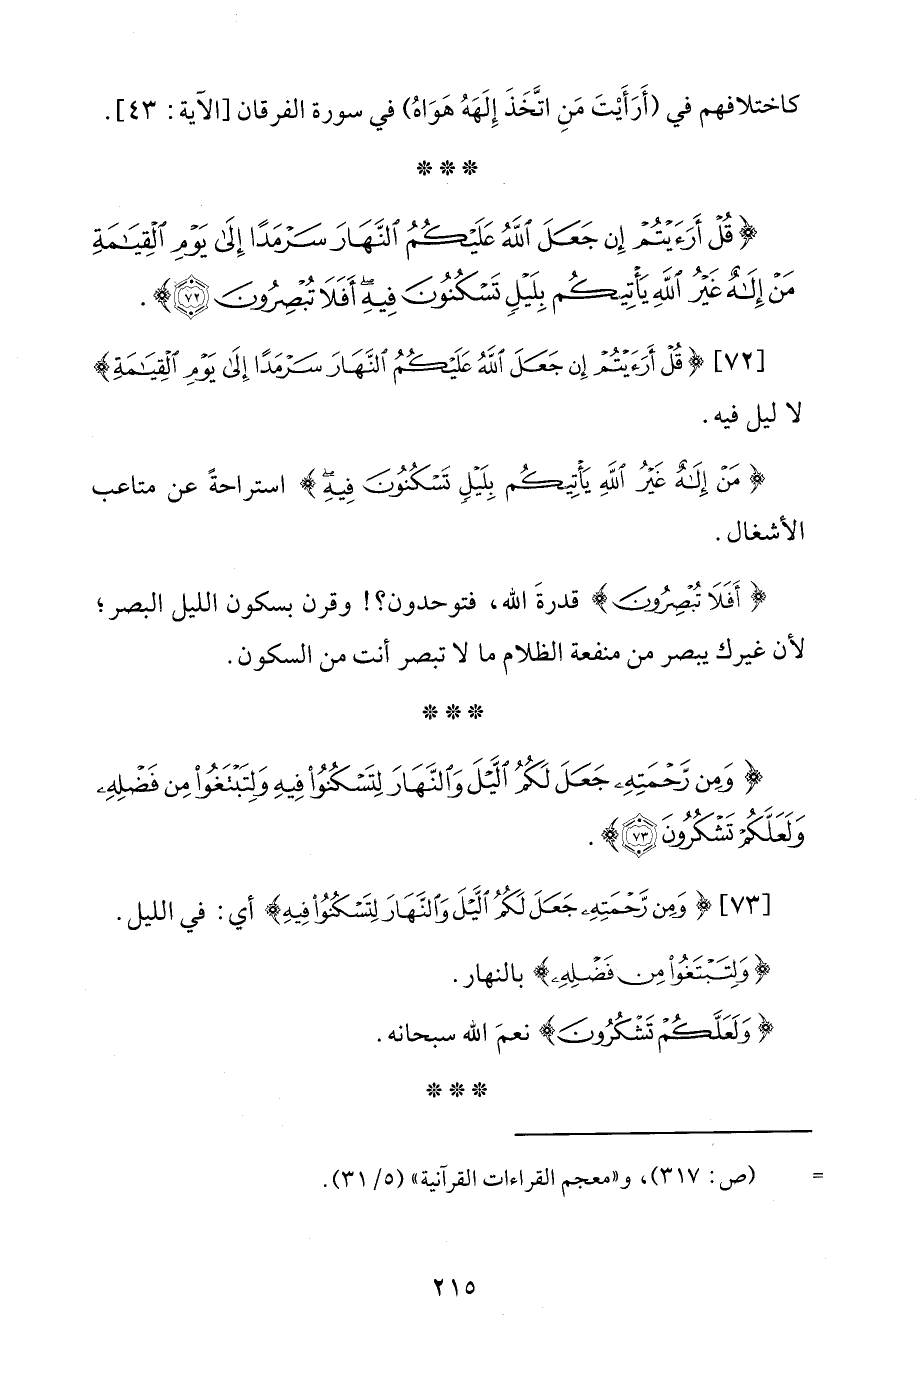 كاختلافهم في (أَرَأَيْتَ مَنِ اتَّخَذَ إِلَهَهُ هَوَاهُ) في سورة الفرقان [الآية: ٤٣].
* * *
﴿ قُلْ أَرَءَيْتُمْ إِن جَعَلَ ٱللَّهُ عَلَيْكُمُ ٱلنَّهَارَ سَرْمَدًا إِلَىٰ يَوْمِ ٱلْقِيَٰمَةِ
مَنْ إِلَٰهٌ غَيْرُ ٱللَّهِ يَأْتِيكُم بِلَيْلٍ تَسْكُنُونَ فِيهِ ۖ أَفَلَا تُبْصِرُونَ ٧٢ ﴾ .
[٧٢] ﴿ قُلْ أَرَءَيْتُمْ إِن جَعَلَ ٱللَّهُ عَلَيْكُمُ ٱلنَّهَارَ سَرْمَدًا إِلَىٰ يَوْمِ ٱلْقِيَٰمَةِ ﴾
لا ليل فيه .
﴿ مَنْ إِلَٰهٌ غَيْرُ ٱللَّهِ يَأْتِيكُم بِلَيْلٍ تَسْكُنُونَ فِيهِ ۖ ﴾ استراحةً عن متاعب
الأشغال .
﴿ أَفَلَا تُبْصِرُونَ ﴾ قدرةَ الله، فتوحدون؟! وقرن بسكون الليل البصر؛
لأن غيرك يبصر من منفعة الظلام ما لا تبصر أنت من السكون.
* * *
﴿ وَمِن رَّحْمَتِهِۦ جَعَلَ لَكُمُ ٱلَّيْلَ وَٱلنَّهَارَ لِتَسْكُنُوا۟ فِيهِ وَلِتَبْتَغُوا۟ مِن فَضْلِهِۦ
وَلَعَلَّكُمْ تَشْكُرُونَ ٧٣ ﴾ .
[٧٣] ﴿ وَمِن رَّحْمَتِهِۦ جَعَلَ لَكُمُ ٱلَّيْلَ وَٱلنَّهَارَ لِتَسْكُنُوا۟ فِيهِ ﴾ أي: في الليل .
﴿ وَلِتَبْتَغُوا۟ مِن فَضْلِهِۦ ﴾ بالنهار .
﴿ وَلَعَلَّكُمْ تَشْكُرُونَ ﴾ نعمَ الله سبحانه .
* * *
= (ص: ٣١٧)، و«معجم القراءات القرآنية» (٥/ ٣١).
٢١٥